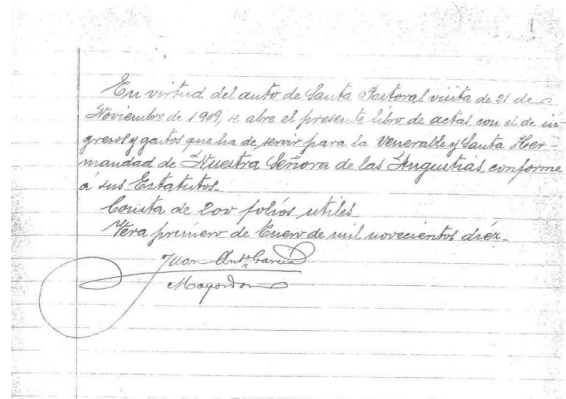 1
En virtud del auto de Santa Pastoral visita de 21 de
Noviembre de 1909, se abre el presente libro de actas con el de in-
gresos y gastos que ha de servir para la Venerable y Santa Her-
mandad de Nuestra Señora de las Angustias, conforme
á sus Estatutos.
Consta de 200 folios utiles.
Vera primero de Enero de mil novecientos diéz.
Juan Ant.º García
Mayordomo